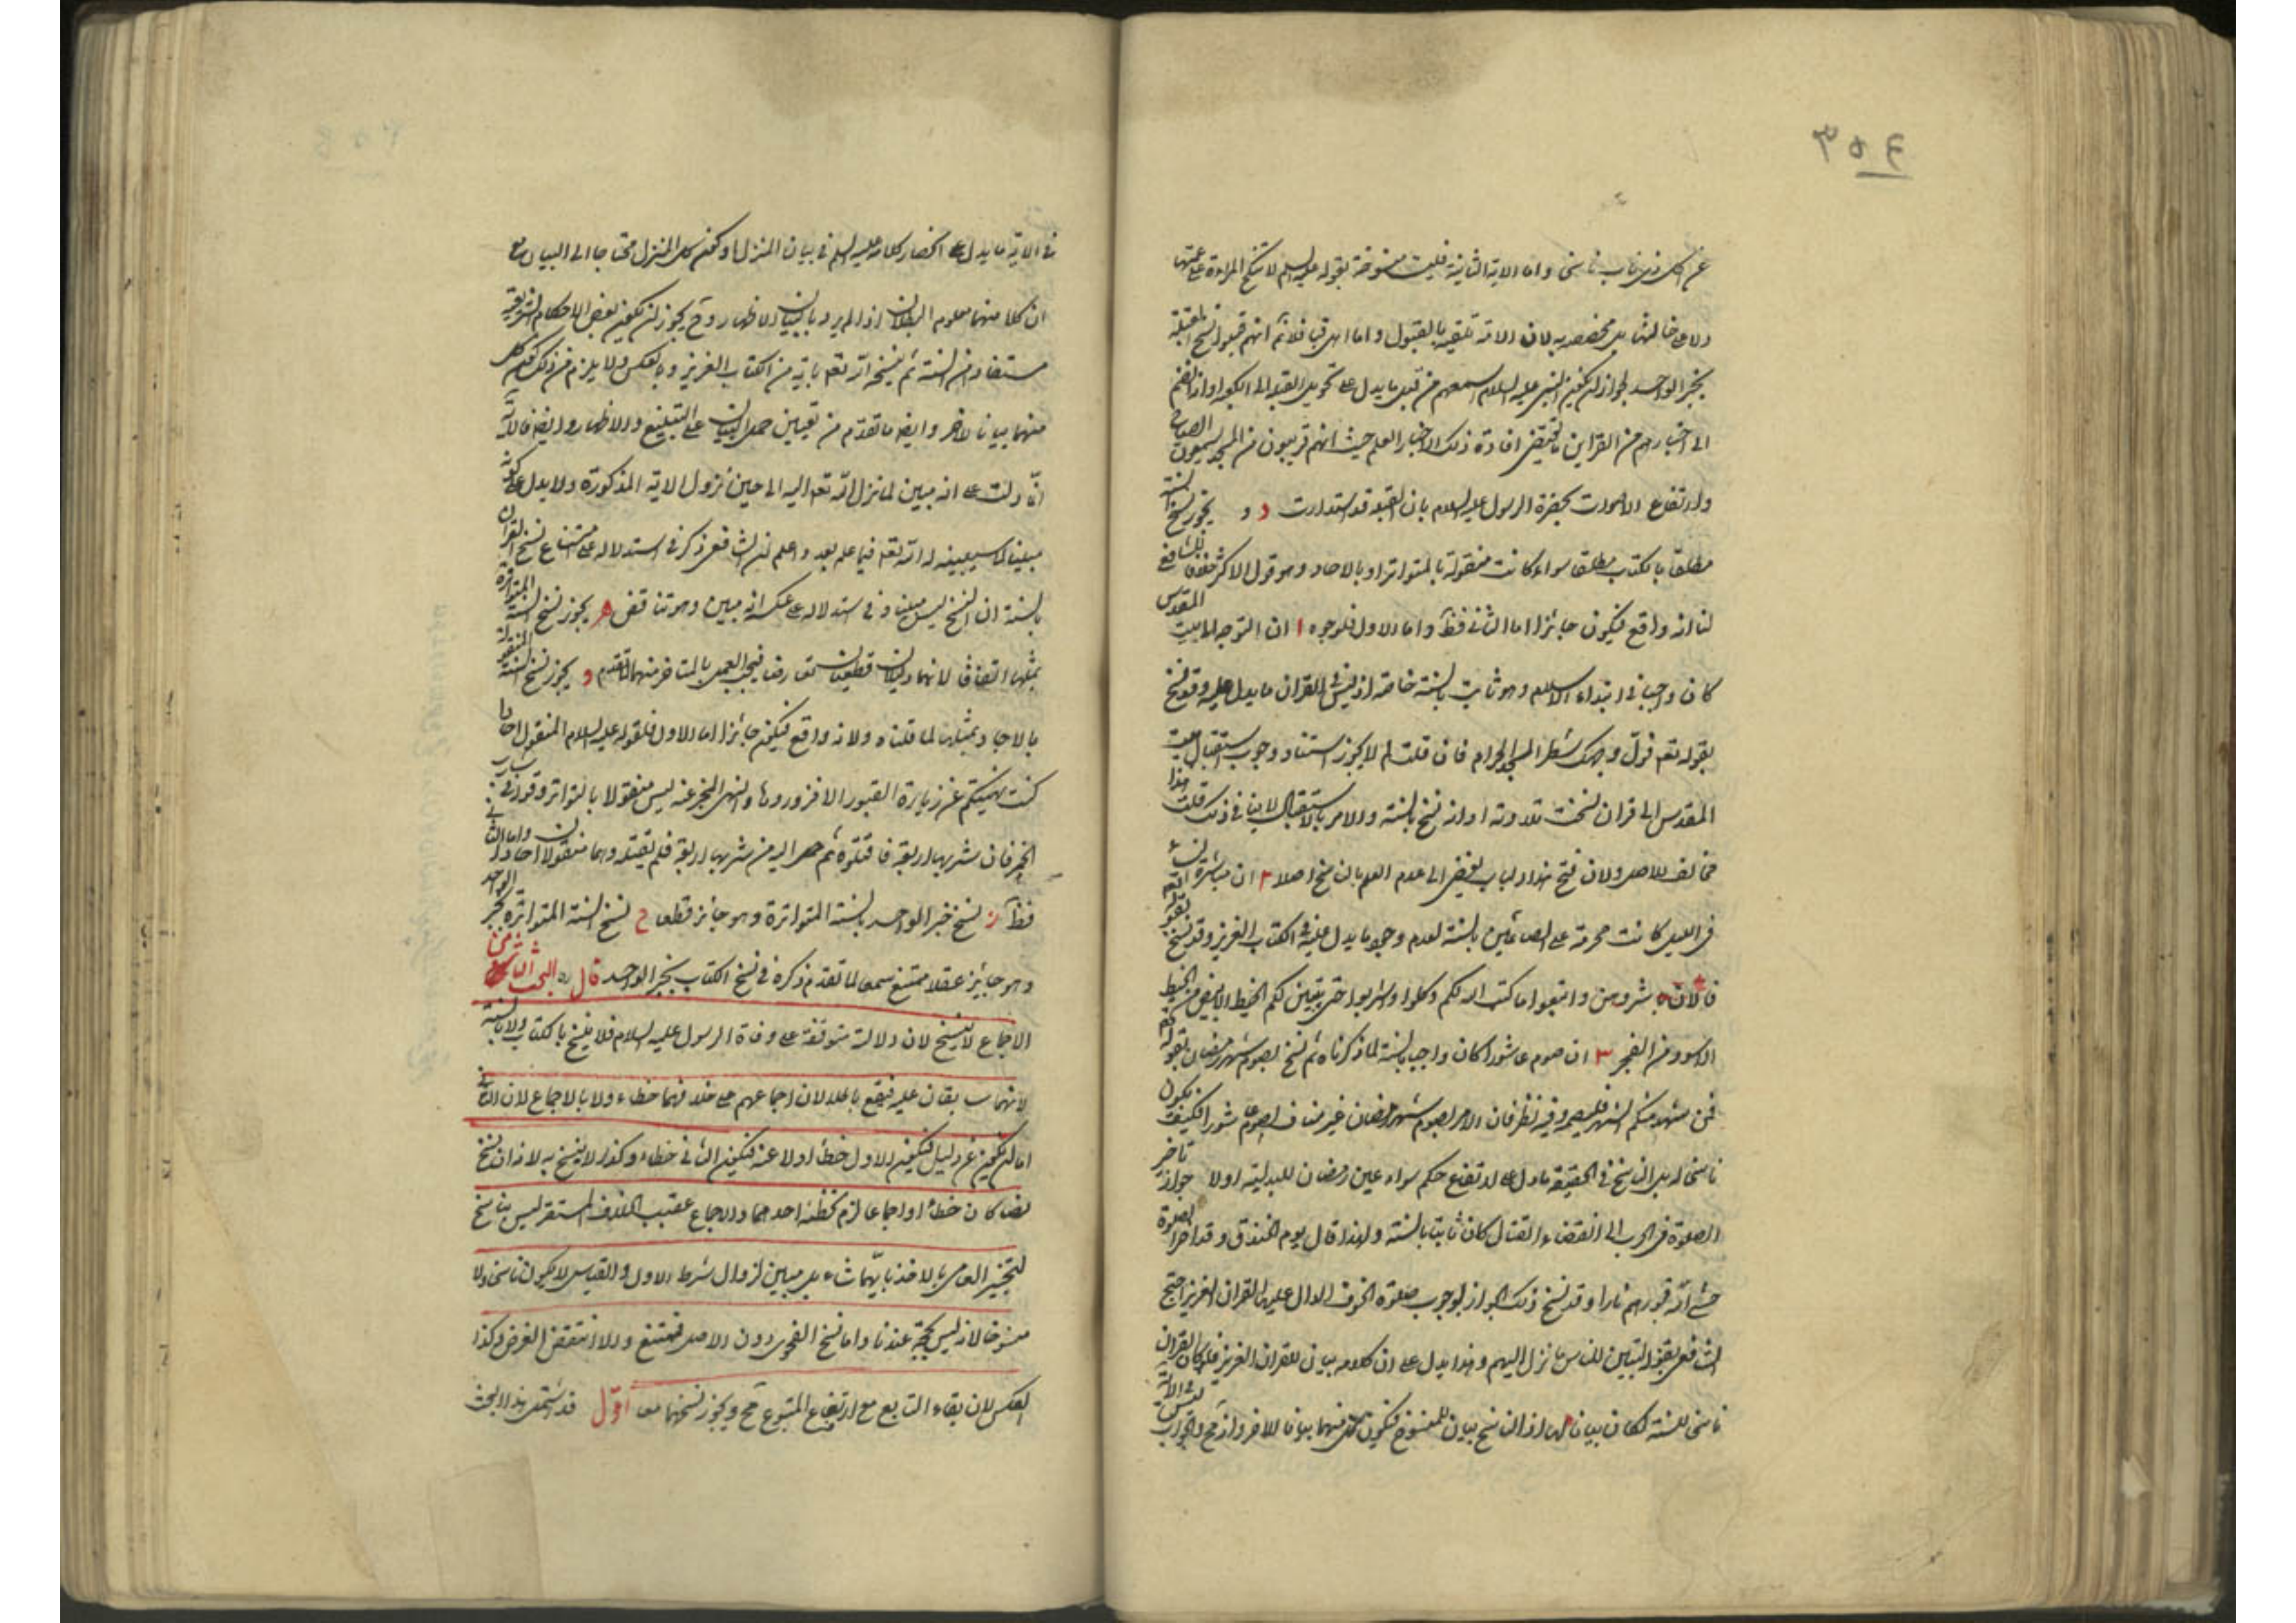 ٣٥٤
عن اكل ذى ناب ناسخا واما الاية الثانية فليست منسوخة بقوله عليه السلم لا تنكح المراءة على عمتها
ولا على خالتها بل مخصصه به لان الامة تلقته بالقبول واما اهل قبا فلا نم انهم قبلوا نسخ القبلة
بخبر الواحد لجواز ان يكون النبى عليه السلام اسمعهم من قبل ما يدل على تحويل القبلة الى الكعبة او انضم
الى اخباره من القراين ما يقتضى افادة ذلك الاخبار العلم حيث انهم قريبون من المسجد يسمعون الصياح
وارتفاع الاصوات بحضرة الرسول عليه السلام بان القبلة قد استدارت د و يجوز نسخ السنة
مطلقا بالكتاب مطلقا سواء كانت منقولة بالمتواتر او بالاحاد وهو قول الاكثر خلافا للشافعى
لنا انه واقع فيكون جائزا اما الثانى فظ واما الاول فلوجوه ا ان التوجه الى بيت المقدس
كان واجبا فى ابتداء الاسلام وهو ثابت بالسنة خاصة اذ ليس فى القران ما يدل عليه وقد نسخ
بقوله تعه فول وجهك شطر المسجد الحرام فان قلت لم لا يجوز استناد وجوب استقبال بيت
المقدس الى قران نسخت تلاوته او انه نسخ بالسنة والامر بالاستقبال لا ينافى ذلك قلت هذا
مخالف للاصل ولان فتح هذا الباب يفضى الى عدم العلم بالناسخ اصلا ٢ ان مباشرة النساء
فى الليل كانت محرمة على الصائمين بالسنة لعدم وجود ما يدل عليه فى الكتاب العزيز وقد نسخ بقوله تعه
فالان باشروهن وابتغوا ما كتب الله لكم وكلوا واشربوا حتى يتبين لكم الخيط الابيض من الخيط
الاسود من الفجر ٣ ان صوم عاشورا كان واجبا بالسنة لما ذكرناه ثم نسخ بصوم شهر رمضان بقوله تعه
فمن شهد منكم الشهر فليصمه وفيه نظر فان الامر بصوم شهر رمضان غير مناف لصوم عاشورا فكيف يكون
ناسخا له بل الناسخ فى الحقيقة ما دل على ارتفاع حكم سواء عين رمضان للبدلية او لا جواز تاخير
الصلوة فى الحرب الى انقضاء القتال كان ثابتا بالسنة ولهذا قال يوم الخندق وقد اخر الصلوة
حشى الله قبورهم نارا وقد نسخ ذلك الجواز بوجوب صلوة الخوف الدال عليها القران العزيز احتج
الشافعى بقوله لتبين للناس ما نزل اليهم وهذا يدل على ان كلامه بيان للقران العزيز فلو كان القران
ناسخا للسنة لكان بيانا لها اذ الناسخ بيان للمنسوخ فيكون كل منهما بيانا للاخر وانه مح والجواب ليس فى الاية
فى الاية ما يدل على انحصار كلامه عليه السلم فى بيان المنزل او كون كل المنزل محتاجا الى البيان مع
ان كلا منهما معلوم البطلان اذا لم يرد بالبيان الاظهار وح يجوز ان يكون بعض الاحكام الشرعية
مستفادا من السنة ثم ينسخه الله تعه باية من الكتاب العزيز وبالعكس ولا يلزم من ذلك كون كل
منهما بيانا للاخر وايضا ما تقدم من تعيين حمل البيان على التبليغ والاظهار وايضا فالاية
انما دلت على انه مبين لما نزل الله تعه اليه الى حين نزول الاية المذكورة ولا يدل على كونه
مبينا لما سيبينه له الله تعه فيما بعد واعلم ان الشافعى ذكر فى استدلاله على امتناع نسخ القران
بالسنة ان النسخ ليس مبينا وفى استدلاله على عكسه انه مبين وهو تناقض ه يجوز نسخ السنة المتواترة
بمثلها اتفاقا لانهما دليلان قطعيان تعارضا فيجب العمل بالمتاخر منهما للتقدم و يجوز نسخ السنة المنقولة
بالاحاد بمثلها لما قلناه ولانه واقع فيكون جائزا اما الاول فلقوله عليه السلام المنقول احادا
كنت نهيتكم عن زيارة القبور الا فزوروها والنهى المخبر عنه ليس منقولا بالتواتر وقوله فى شارب
الخمر فان شربها الرابعة فاقتلوه ثم حمل اليه من شربها الرابعة فلم يقتله وهما منقولان احادا واما الثانى
فظ ز نسخ خبر الواحد بالسنة المتواترة وهو جائز قطعا ح نسخ السنة المتواترة بخبر الواحد
وهو جايز عقلا ممتنع سمعا لما تقدم ذكره فى نسخ الكتاب بخبر الواحد قال ره البحث الثامن
الاجماع لا ينسخ لان دلالته متوقفة على وفاة الرسول عليه السلام فلا ينسخ بالكتاب ولا بالسنة
لانهما سابقان عليه فيقع باطلا لان اجماعهم على خلافهما خطاء ولا بالاجماع لان الثانى
اما ان يكون عن دليل فيكون الاول خطأ اولا عنه فيكون الثانى خطاء وكذا لا ينسخ به لانه ان نسخ
نصا كان خطأ او اجماعا لزم تخطئة احدهما والاجماع عقيب الخلاف المستقر ليس بناسخ
لتخيير العامى بالاخذ بايهما شاء بل مبين لزوال شرط الاول والقياس لا يكون ناسخا ولا
منسوخا لانه ليس بحجة عندنا واما نسخ الفحوى دون الاصل فممتنع والا انتقض الغرض وكذا
العكس لان بقاء التابع مع ارتفاع المتبوع مح ويجوز نسخهما معا اقول قد اشتمل هذا البحث